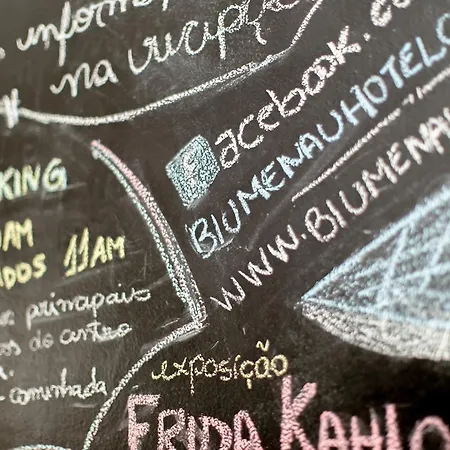 na recepção
facebook.co
BLUMENAUHOTELC
WWW.BLUMENA
KING
11AM
principais
do centro
caminhada
exposição
FRIDA KAHLO